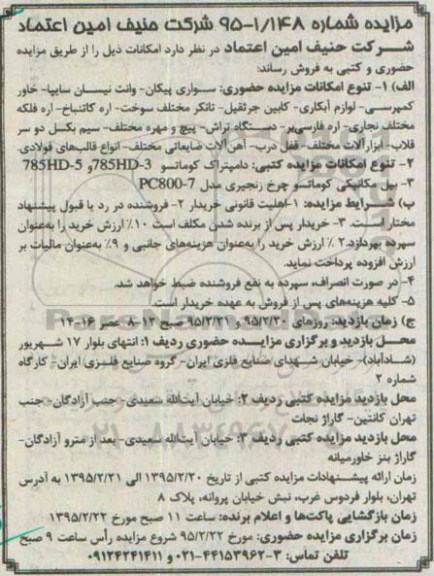 مزایده شماره ۹۵-۱/۱۴۸ شرکت حنیف امین اعتماد
شرکت حنیف امین اعتماد در نظر دارد امکانات ذیل را از طریق مزایده
حضوری و کتبی به فروش رساند:
الف) ۱- تنوع امکانات مزایده حضوری: سواری پیکان- وانت نیسان سایپا- خاور
کمپرسی- لوازم آبکاری- کابین جرثقیل- تانکر مختلف سوخت- اره کاتنباخ- اره فلکه
مختلف نجاری- اره فارسی‌بر- دستگاه تراش- پیچ و مهره مختلف- سیم بکسل دو سر
قلاب- ابزارآلات مختلف- قفل درب- آهن‌آلات ضایعاتی مختلف- انواع قالب‌های فولادی.
۲- تنوع امکانات مزایده کتبی: دامپتراک کوماتسو 785HD-3 و 785HD-5
۳- بیل مکانیکی کوماتسو چرخ زنجیری مدل PC800-7
ب) شرایط مزایده: ۱-اهلیت قانونی خریدار ۲- فروشنده در رد یا قبول پیشنهاد
مختار است. ۳- خریدار پس از برنده شدن مکلف است ۱۰٪ ارزش خرید را به‌عنوان
سپرده بپردازد. ۲٪ ارزش خرید را به‌عنوان هزینه‌های جانبی و ۹٪ به‌عنوان مالیات بر
ارزش افزوده پرداخت نماید.
۴- در صورت انصراف، سپرده به نفع فروشنده ضبط خواهد شد.
۵- کلیه هزینه‌های پس از فروش به عهده خریدار است.
ج) زمان بازدید: روزهای ۹۵/۲/۲۰ و ۹۵/۲/۲۱ صبح ۱۲-۸ عصر ۱۶-۱۴
محل بازدید و برگزاری مزایده حضوری ردیف ۱: انتهای بلوار ۱۷ شهریور
(شادآباد)- خیابان شهدای صنایع فلزی ایران- گروه صنایع فلزی ایران- کارگاه
شماره ۲
محل بازدید مزایده کتبی ردیف ۲: خیابان آیت‌الله سعیدی- جنب آزادگان- جنب
تهران کانتین- گاراژ نجات
محل بازدید مزایده کتبی ردیف ۳: خیابان آیت‌الله سعیدی- بعد از مترو آزادگان-
گاراژ بنز خاورمیانه
زمان ارائه پیشنهادات مزایده کتبی از تاریخ ۱۳۹۵/۲/۲۰ الی ۱۳۹۵/۲/۲۱ به آدرس
تهران، بلوار فردوس غرب، نبش خیابان پروانه، پلاک ۸
زمان بازگشایی پاکت‌ها و اعلام برنده: ساعت ۱۱ صبح مورخ ۱۳۹۵/۲/۲۲
زمان برگزاری مزایده حضوری: مورخ ۹۵/۲/۲۲ شروع مزایده رأس ساعت ۹ صبح
تلفن تماس: ۳-۴۴۱۵۳۹۶۲-۰۲۱ و ۰۹۱۲۴۲۴۱۴۱۱